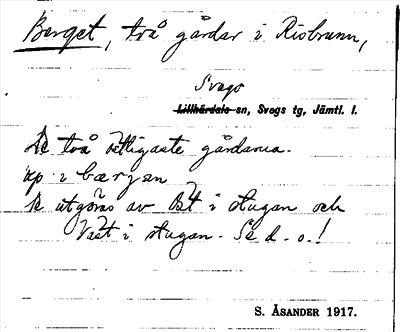 Berget, två gårdar i Risbrunn,
Svegs
Lillhärdals sn, Svegs tg, Jämtl. l.
De två östligaste gårdarna.
up i bærjan
De utgöras av Öst i stugan och
Väst i stugan. Se d. o.!
S. ÅSANDER 1917.